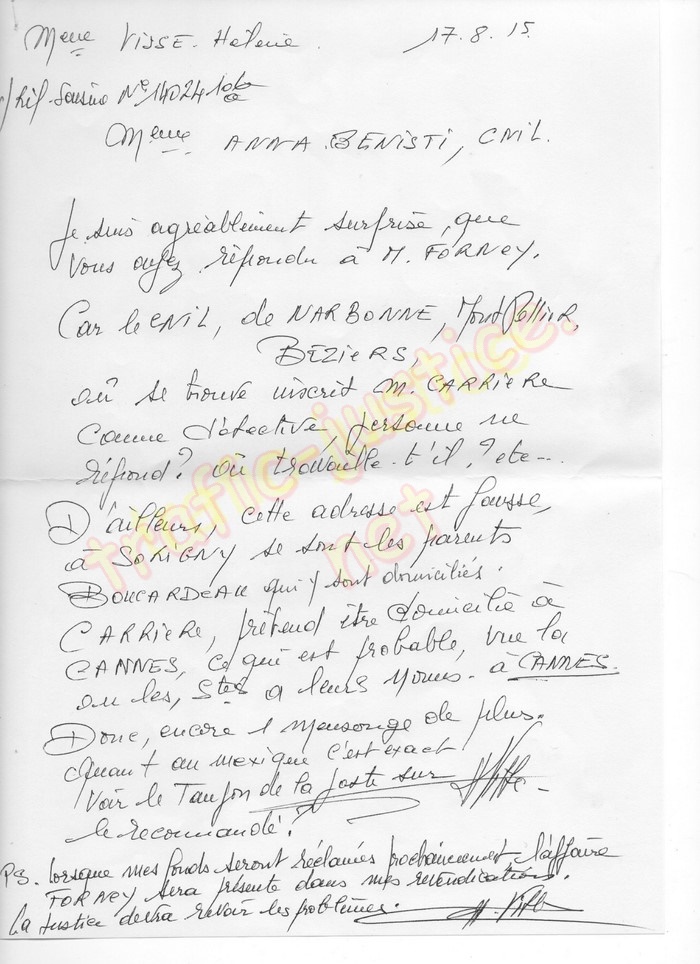 Mme VISSE. Helene. 17.8.15.
Réf. N° 14024106
Mme ANNA BENISTI, CNIL.
Je suis agréablement surprise, que
vous ayez répondu à M. FORNEY.
Car le CNIL, de NARBONNE, MontPellier,
BÉZIERS,
où se trouve inscrit M. CARRIERE
comme détective, personne ne
répond? où travaille-t'il? etc...
D'ailleurs, cette adresse est fausse,
à SORIGNY se sont les parents
BOUCARDEAU qui y sont domiciliés.
CARRIERE, prétend être domicilié à
CANNES, ce qui est probable, vue la
ou les, Stés a leurs noms. à CANNES.
Donc, encore 1 mensonge de plus.
Quant au mexique c'est exact
Voir le Tampon de la poste sur
le recommandé!
PS. Lorsque mes fonds seront réclamés prochainement, l'affaire
FORNEY sera présente dans mes revendications.
La justice devra revoir les problèmes.
trafic-justice.
net